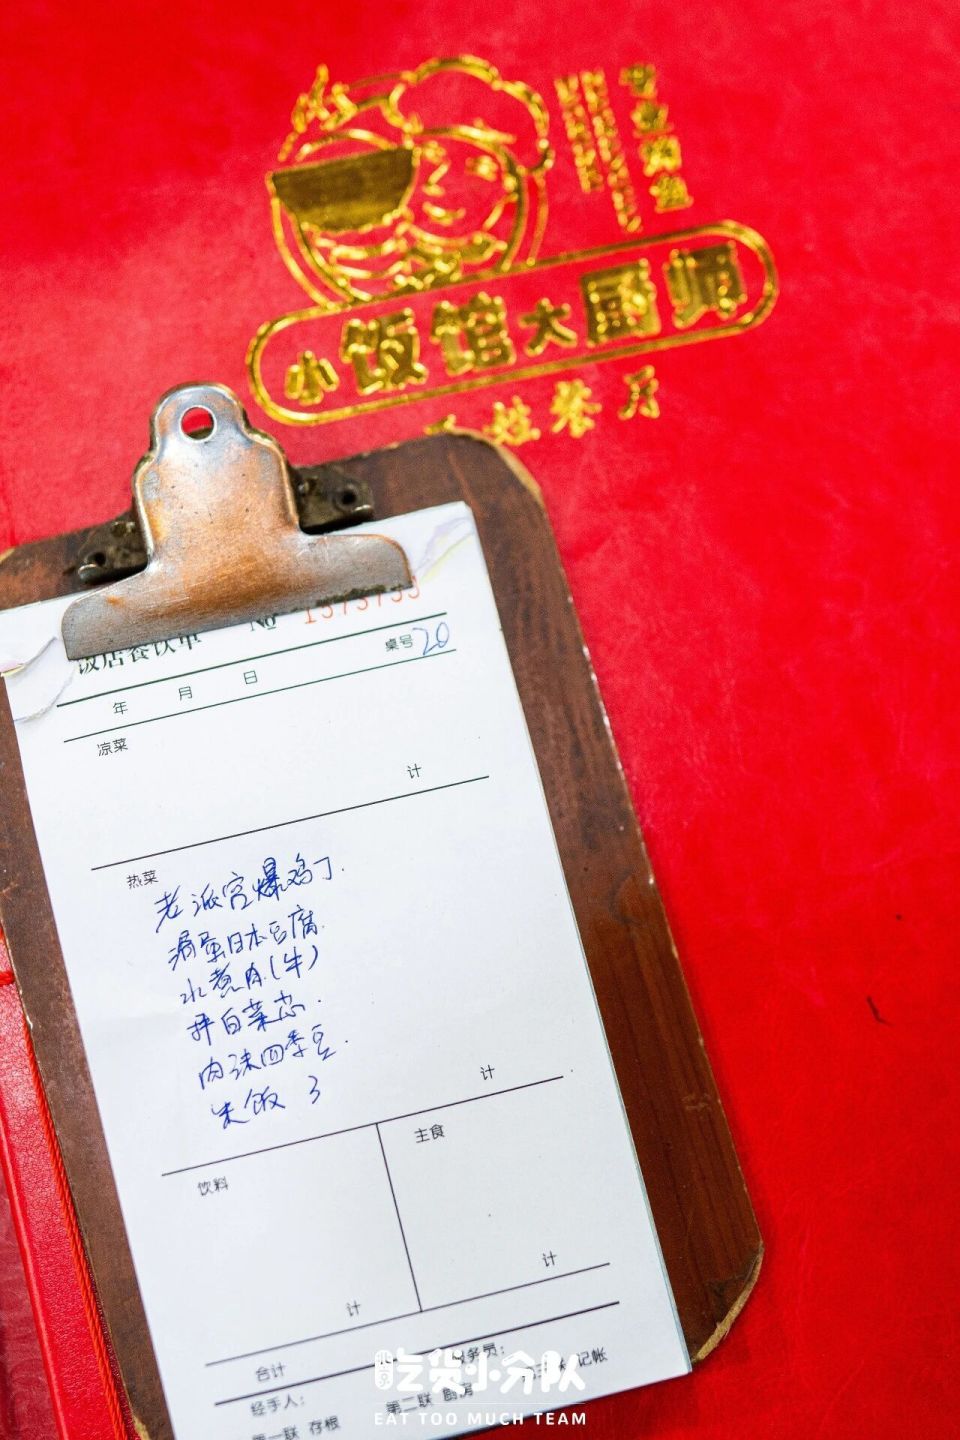 小饭馆大厨师
餐厅
饭店餐饮单 № 1573755
年 月 日 桌号 20
凉菜
计
热菜
老派宫爆鸡丁.
日本豆腐.
水煮肉(牛)
拌白菜芯.
肉沫四季豆.
米饭 3
计
饮料
主食
计
计
合计
服务员:
记帐
经手人:
第一联 存根
第二联 厨房
吃货小分队
EAT TOO MUCH TEAM